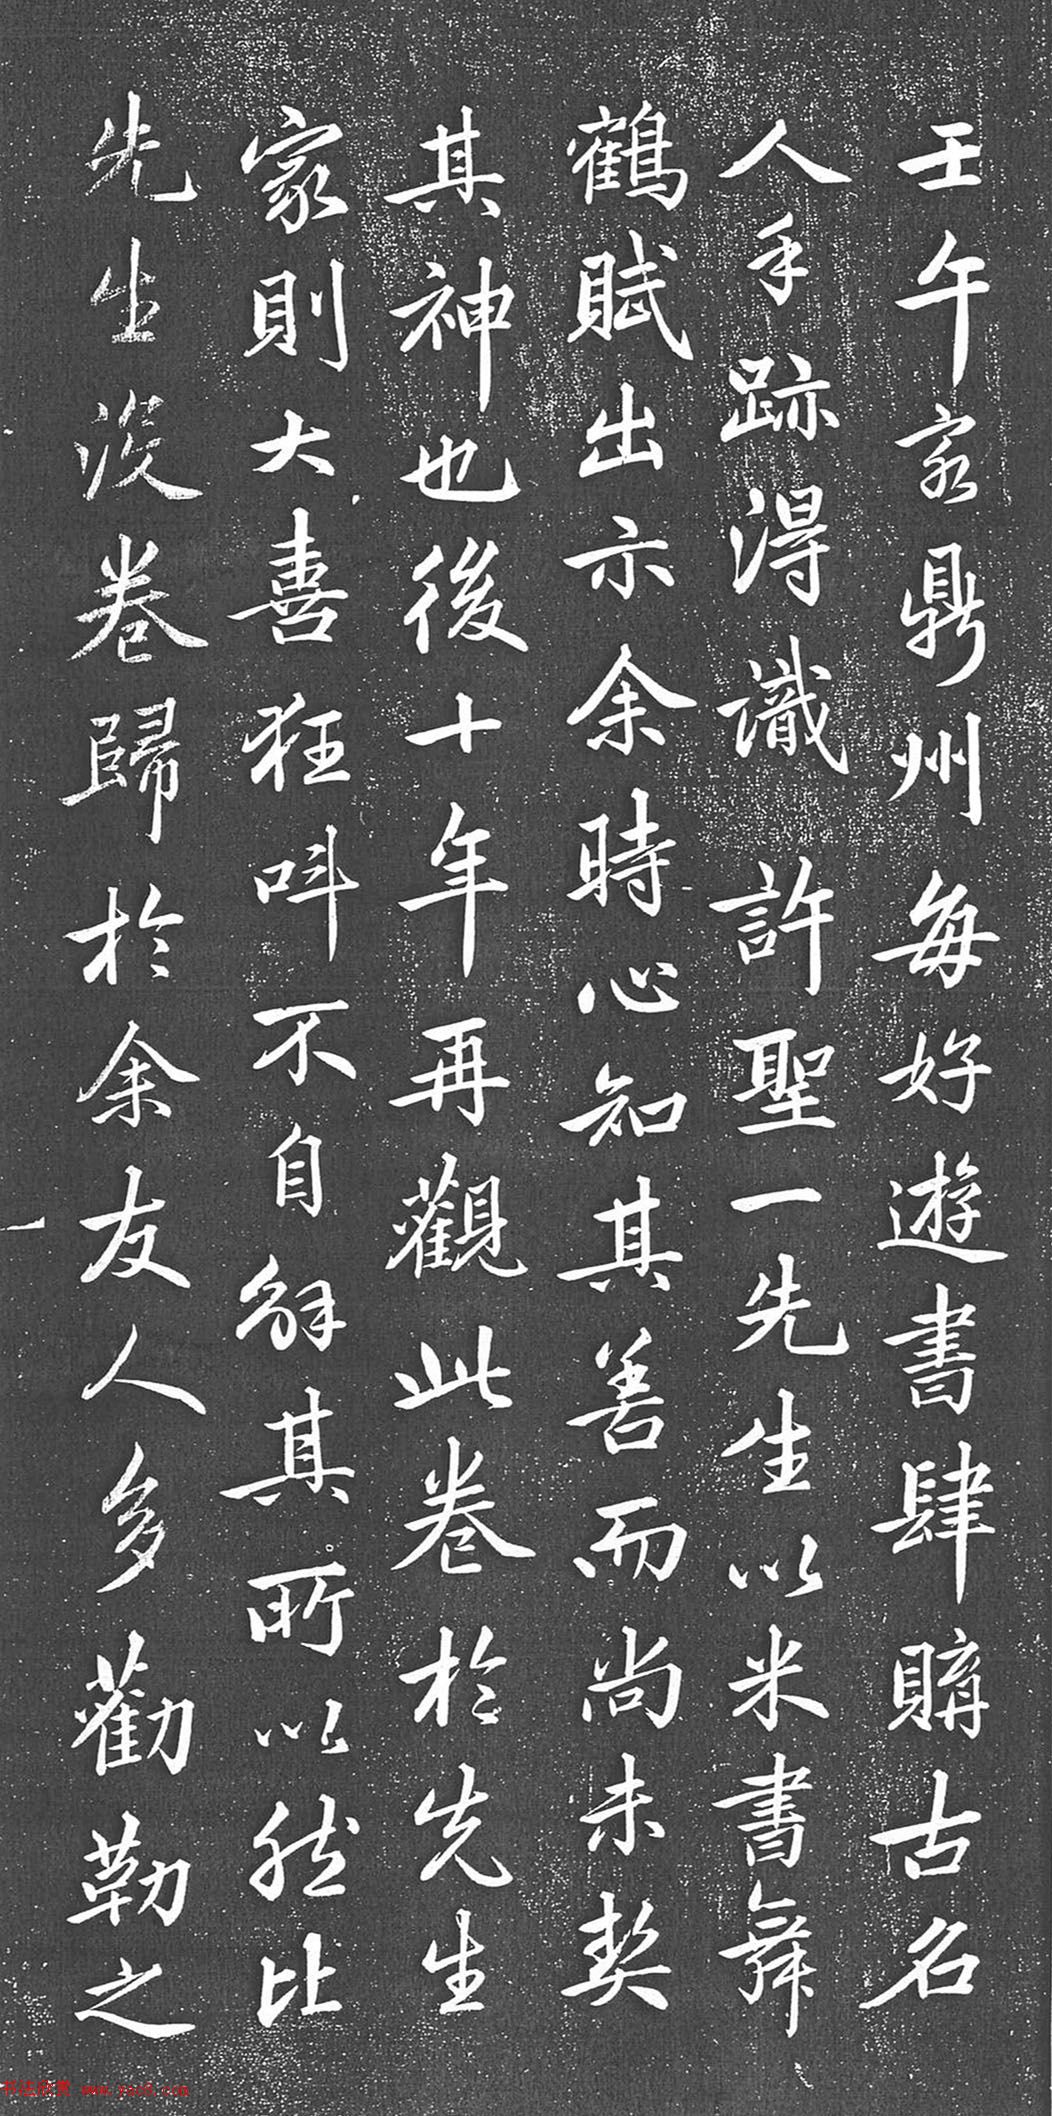 壬午客鼎州每好遊書肆購古名
人手跡得識許聖一先生以米書舞
鶴賦出示余時心知其善而尚未契
其神也後十年再觀此卷於先生
家則大喜狂叫不自解其所以然比
先生沒卷歸於余友人多勸勒之
书法欣赏 www.yac8.com